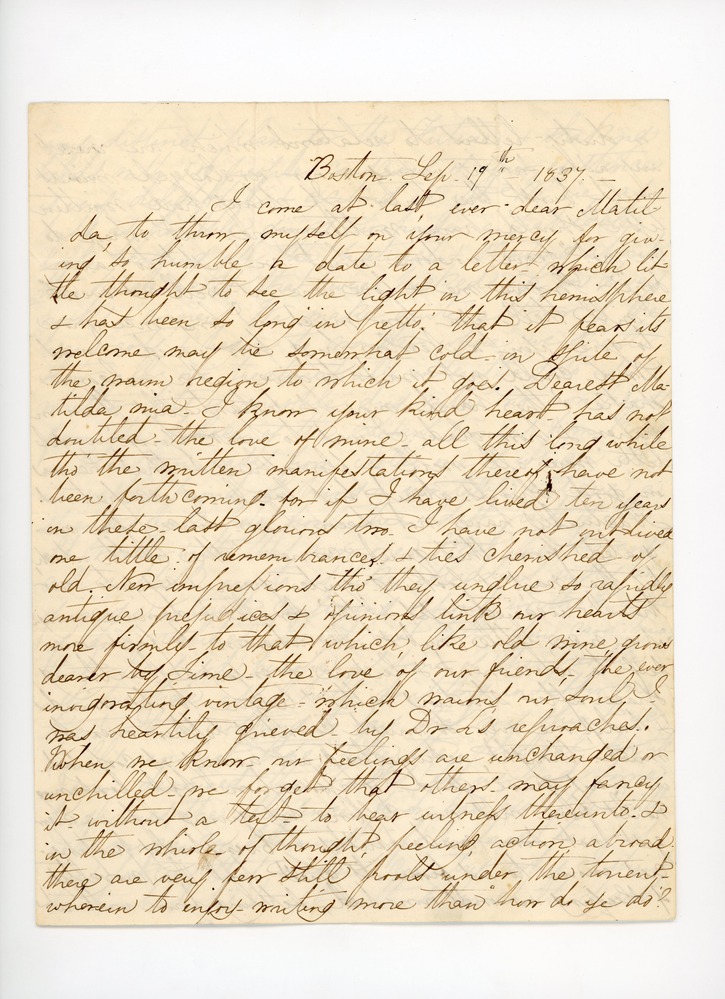 Boston. Sep. 19th - 1837. -
I come at last ever dear Matil
da, to throw myself on your mercy for giv-
ing so humble a date to a letter - which lit
tle thought to see the light in this hemisphere
& has been so long in petto, that it fears its
welcome may be somewhat cold - in spite of
the warm region to which it goes. Dearest Ma-
tilda mia - I know your kind heart has not
doubted - the love of mine - all this long while
tho' the written manifestations thereof have not
been forthcoming. for if I have lived ten years
in these last glorious two - I have not outlived
one tittle of remembrances & ties cherished of
old. New impressions tho' they unglue so rapidly
antique prejudices & opinions link our hearts
more firmly - to that which, like old wine, grows
dearer by time - the love of our friends - the ever
invigorating vintage - which warms our soul. I
was heartily grieved by Dr L's reproaches.
When we know our feelings are unchanged or
unchilled - we forget that others may fancy
it - without a text - to bear witness thereunto. &
in the whole of thought, feeling, action, abroad
there are very few still pools under the torrent -
wherein to enjoy writing more than "how do ye do"?